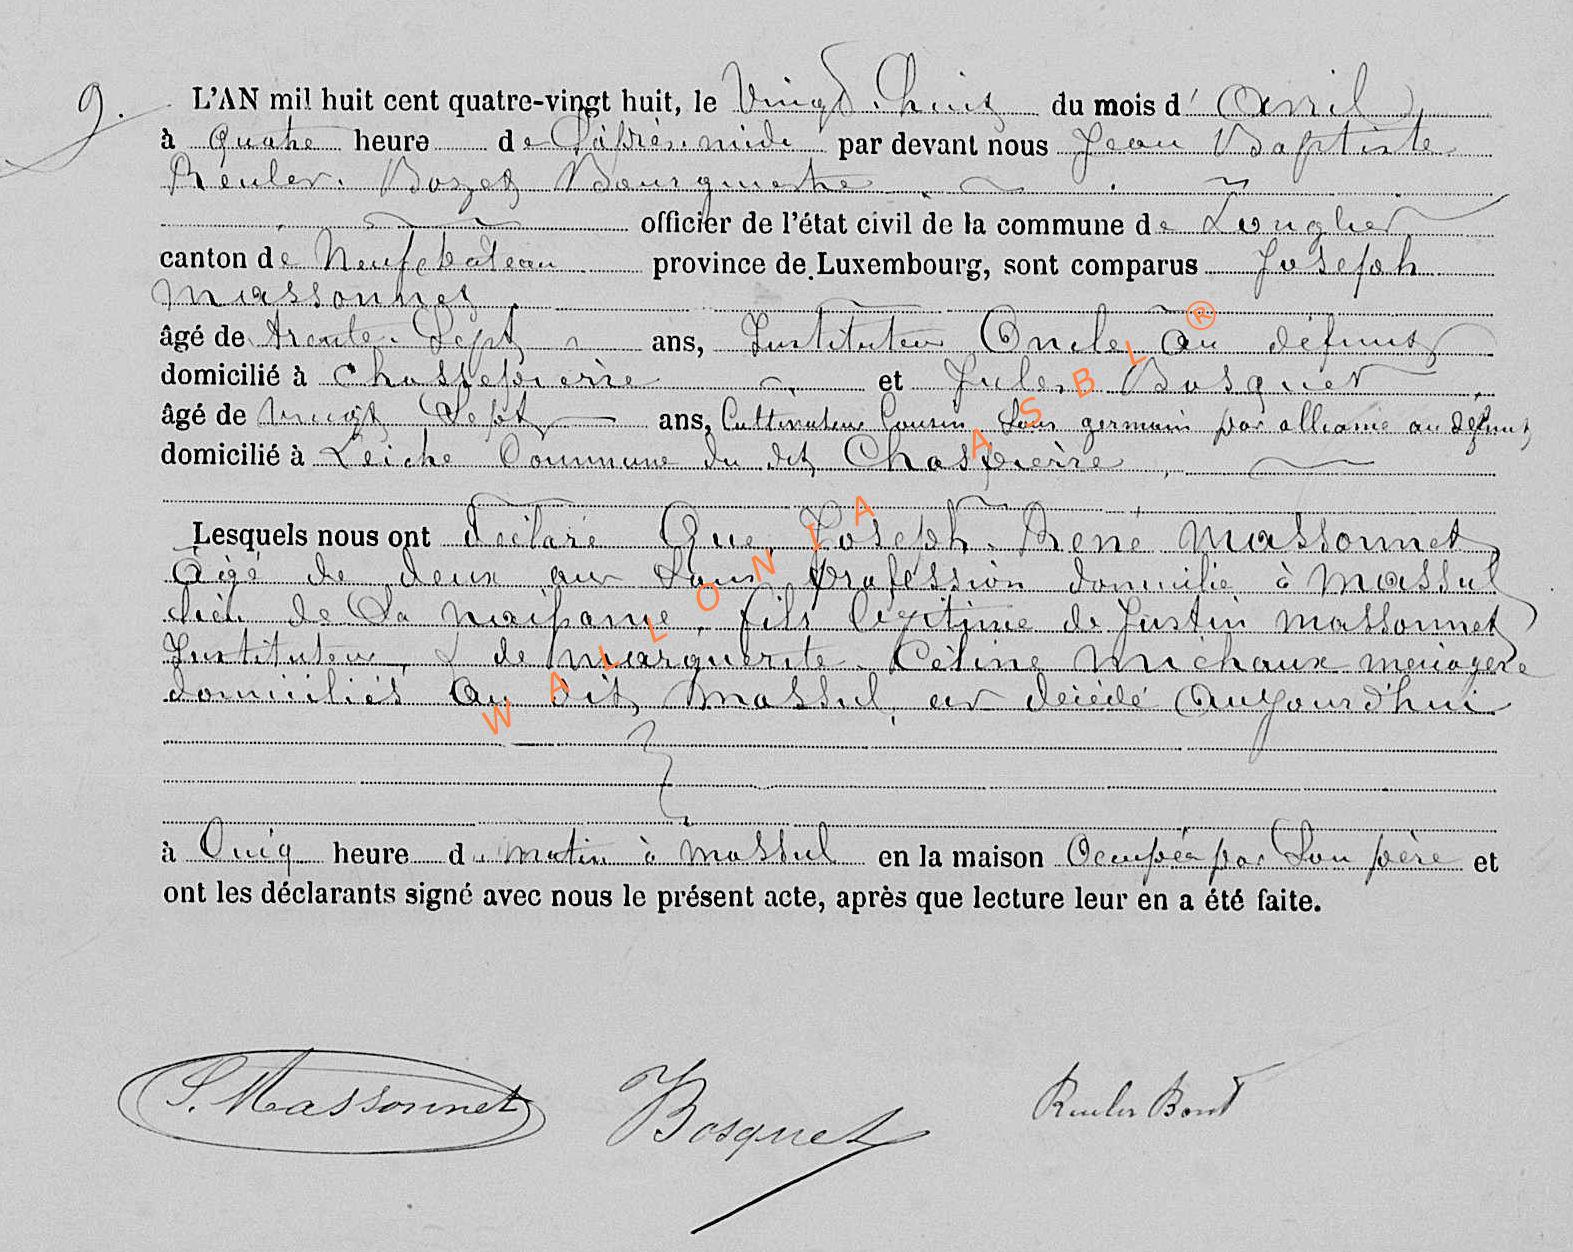 9. L'AN mil huit cent quatre-vingt huit, le Vingt. huit du mois d' Avril
à quatre heure de L'après. midi par devant nous Jean Baptiste
Reuler. Bozet Bourgmestre
officier de l'état civil de la commune de Longlier
canton de Neufchâteau province de Luxembourg, sont comparus Joseph
Massonnet
âgé de trente. Sept ans, Instituteur Oncle Au défunt
domicilié à Chassepierre et Jules Bosquet
âgé de vingt Sept ans, Cultivateur Cousin Sous germain par alliance au défunt
domicilié à Leiche Commune du dit Chaspierre
Lesquels nous ont déclaré Que Joseph. René Massonnet
Agé de deux ans Sans profession domicilié à Massul
lieu de Sa naissance, fils légitime de Justin Massonnet
Instituteur, & de Marguerite. Céline Michaux ménagère
domiciliés Au dit Massul, est décédé Aujourd'hui
à Onig heure du matin à Massul en la maison Occupée par Son père et
ont les déclarants signé avec nous le présent acte, après que lecture leur en a été faite.
J. Massonnet Bosquet Reuler Bozet
WALLONIA ASBL ®